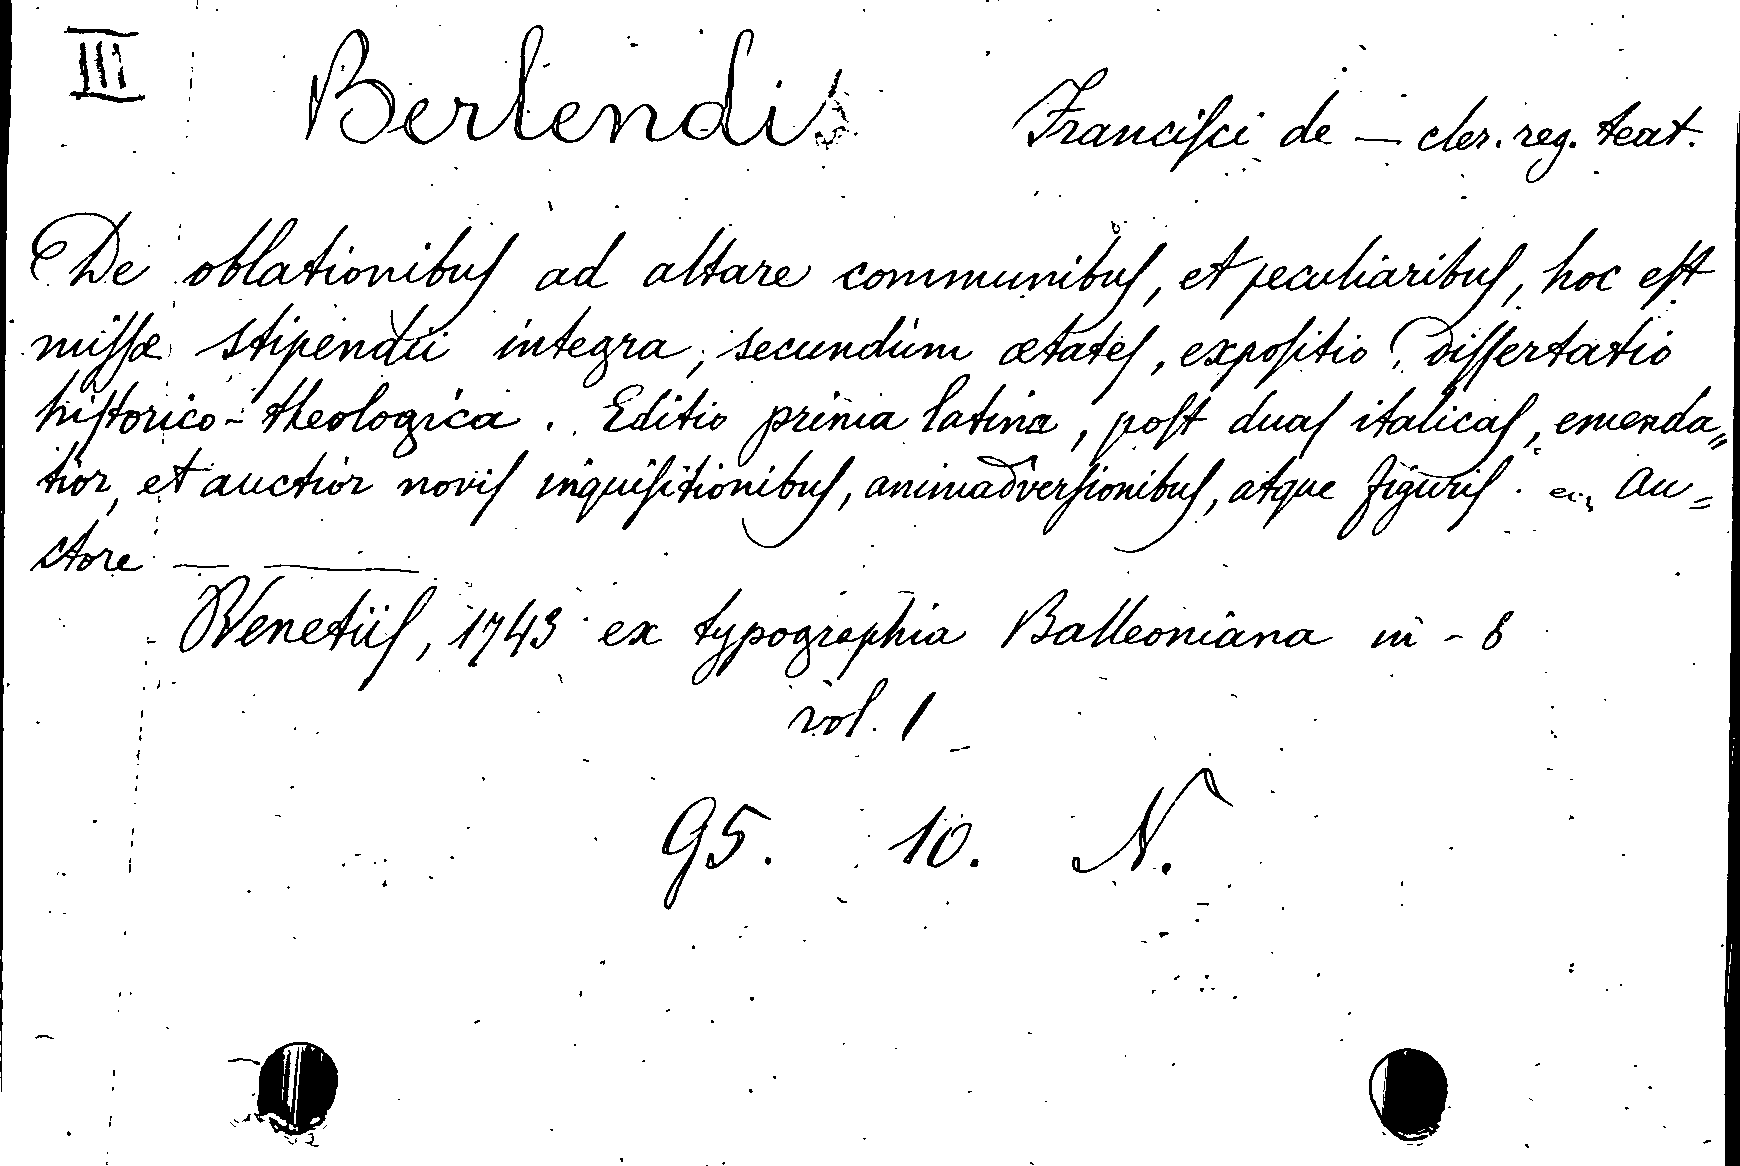 III Berlendis Francisci de — cler. reg. teat.
De oblationibus ad altare communibus, et peculiaribus, hoc est
missæ stipendii integra, secundùm ætates, expositio. Dissertatio
historico-theologica. Editio prima latina, post duas italicas, emenda„
tior, et auctior novis inquisitionibus, animadversionibus, atque figuris. Au=
ctore — —
Venetiis, 1743 ex typographia Balleoniana in-8
vol. 1
95. 10. N.